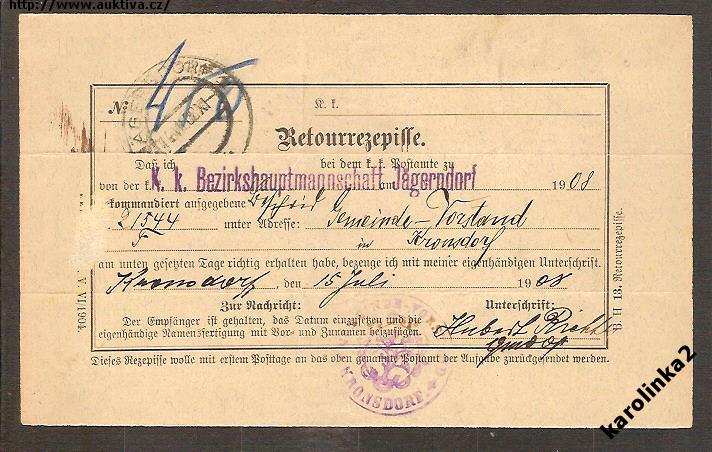 http://www.auktiva.cz/
№ 410 K. k.
Retourrezepisse.
Daß ich bei dem k. k. Postamte zu
von der k. K. k. Bezirkshauptmannschaft Jägerndorf am 1908
kommandiert aufgegebene Bescheid Gemeinde-Vorstand
21544 unter Adresse: in Kronsdorf
F
am unten gesetzten Tage richtig erhalten habe, bezeuge ich mit meiner eigenhändigen Unterschrift.
Kronsdorf, den 15 Juli 1908
Zur Nachricht: Unterschrift:
Der Empfänger ist gehalten, das Datum einzusetzen und die
eigenhändige Namensfertigung mit Vor- und Zunamen beizufügen.
Hubert
Dieses Rezepisse wolle mit erstem Posttage an das oben genannte Postamt der Aufgabe zurückgesendet werden.
KRONSDORF.
B. H 13. Retourrezepisse.
karolinka2